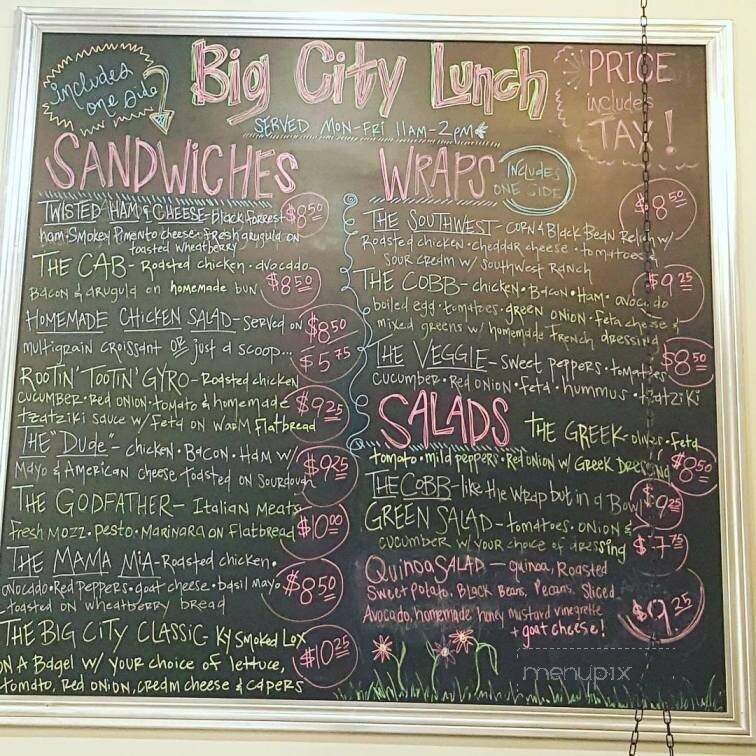 includes
one side
Big City Lunch
SERVED MON-FRI 11AM-2PM
PRICE
includes
TAX!
SANDWICHES
TWISTED HAM & CHEESE-Black Forrest $8.50
ham•Smokey Pimento cheese•fresh arugula on
toasted wheatberry
THE CAB- Roasted chicken•avocado
Bacon & arugula on homemade bun $8.50
HOMEMADE CHICKEN SALAD-served on $8.50
multigrain croissant OR just a scoop... $5.75
ROOTIN' TOOTIN' GYRO-Roasted chicken
cucumber•Red onion•tomato & homemade $9.25
tzatziki sauce w/ feta on warm flatbread
THE "Dude"-chicken•Bacon•Ham w/ $9.25
Mayo & American cheese toasted on sourdough
THE GODFATHER- Italian Meats
fresh mozz•pesto•Marinara on flatbread $10.00
THE MAMA MIA-Roasted chicken•
avocado•Red peppers•goat cheese•basil mayo $8.50
toasted on wheatberry bread
THE BIG CITY CLASSIC- KY Smoked Lox
ON A Bagel w/ your choice of lettuce, $10.25
tomato, red onion, cream cheese & capers
WRAPS
INCLUDES
ONE SIDE
$8.50
THE SOUTHWEST-CORN & Black Bean Relish w/
Roasted chicken•cheddar cheese•tomatoes
sour cream w/ southwest Ranch
THE COBB-chicken•Bacon•Ham•avocado $9.25
boiled egg•tomatoes•green onion•feta cheese &
mixed greens w/ homemade French dressing
THE VEGGIE-sweet peppers•tomatoes $8.50
cucumber•Red onion•feta•hummus•tzatziki
SALADS
THE GREEK-olives•feta
tomato•mild peppers•Red onion w/ Greek Dressing $8.50
THE COBB-like the wrap but in a Bowl $9.25
GREEN SALAD-tomatoes•onion &
cucumber w/ your choice of dressing $7.75
Quinoa SALAD - quinoa, Roasted
Sweet potato, Black Beans, Pecans, Sliced
Avocado, homemade honey mustard vinegrette $9.25
+ goat cheese!
menupix